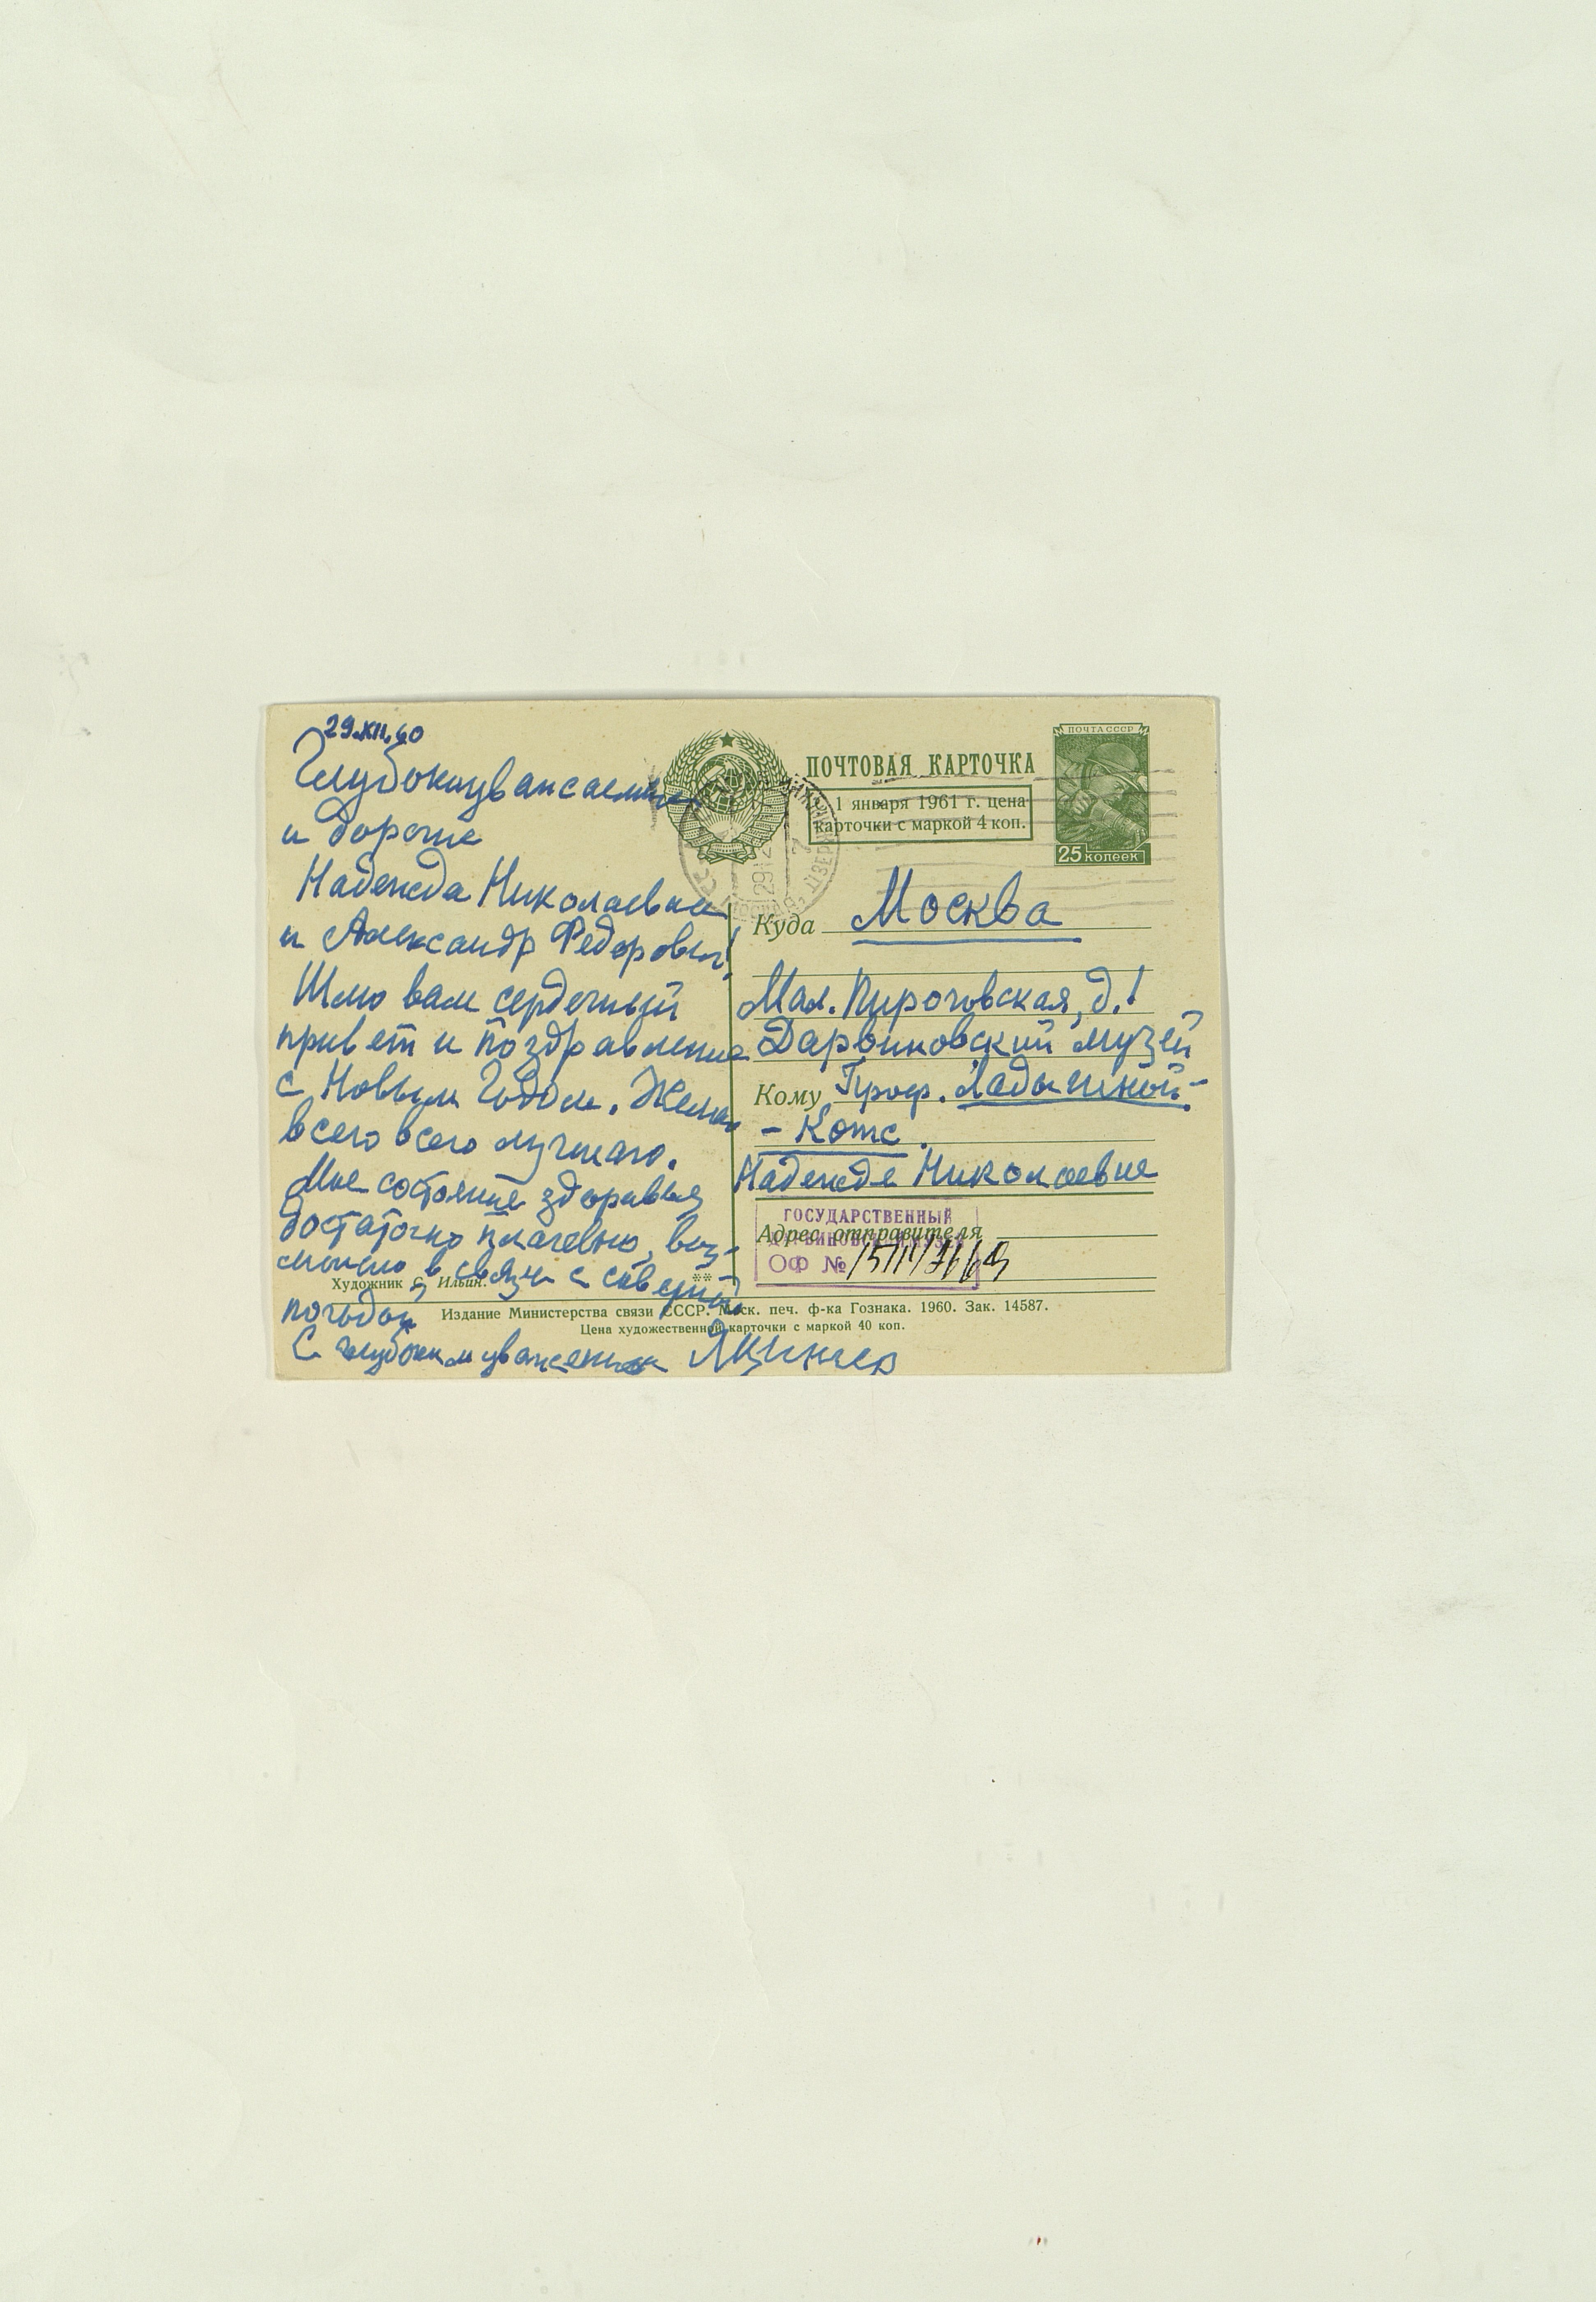 29.XII.60
Глубокоуважаемые
и дорогие
Надежда Николаевна
и Александр Федорович!
Шлю вам сердечный
привет и поздравление
с Новым Годом. Желаю
всего всего лучшего.
Мое состояние здоровья
достаточно плачевно, воз-
можно в связи с скверной
погодой
С глубоким уважением
ПОЧТОВАЯ КАРТОЧКА
1 января 1961 г. цена
карточки с маркой 4 коп.
ПОЧТА СССР
25 копеек
Куда Москва
Мал. Пироговская, д. 1
Дарвиновский музей
Кому Проф. Ладыгиной-
- Котс.
Надежде Николаевне
ГОСУДАРСТВЕННЫЙ
ДАРВИНОВСКИЙ МУЗЕЙ
ОФ №
Адрес отправителя
Художник С. Ильин.
Издание Министерства связи СССР. Моск. печ. ф-ка Гознака. 1960. Зак. 14587.
Цена художественной карточки с маркой 40 коп.